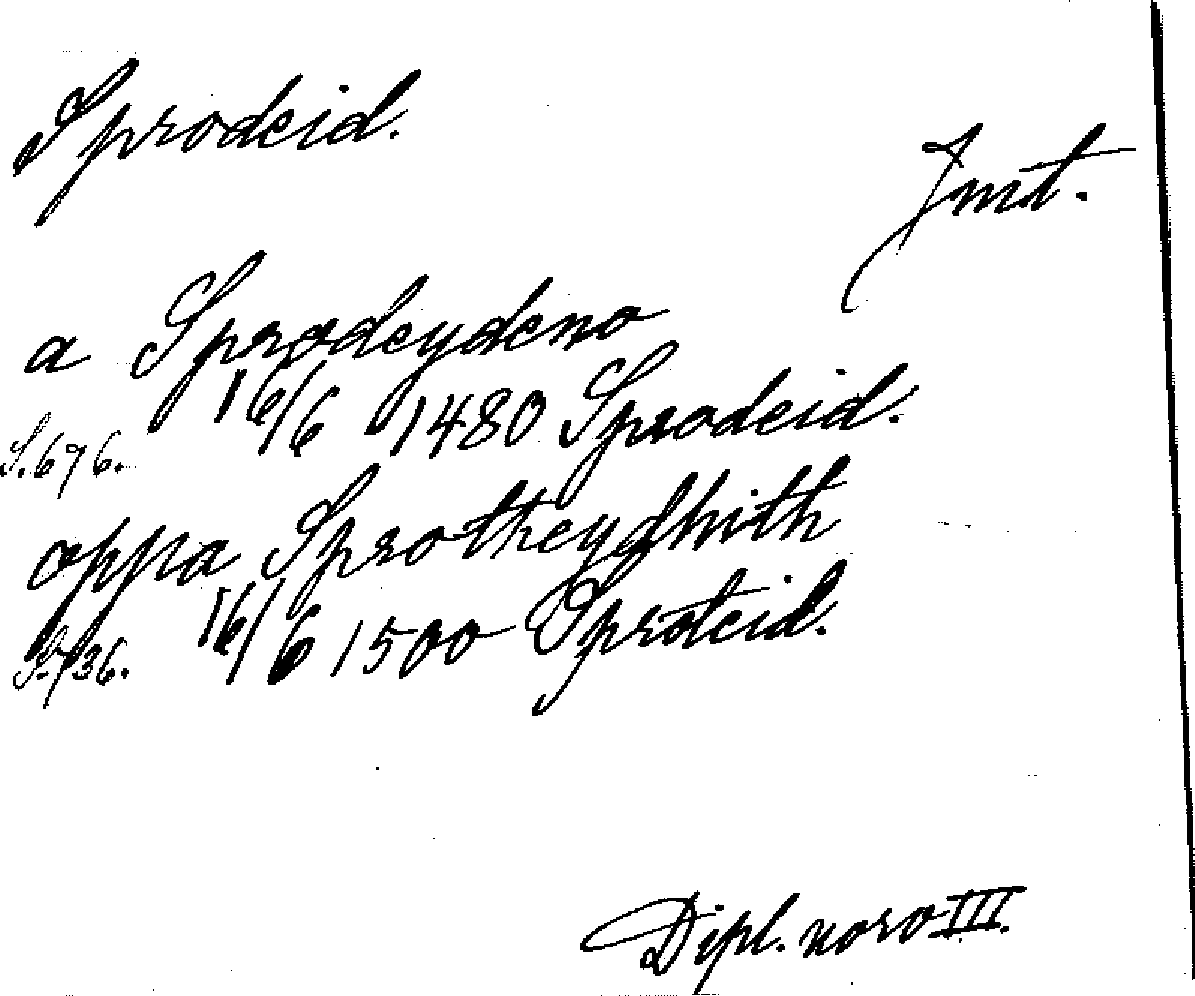 Sprodeid.
Jmt.
a Sprodeydeno
16/6 1480 Sprodeid.
S. 676.
oppa Sprotheydhith
16/6 1500 Sproteid.
S. 736.
Dipl. norv III.